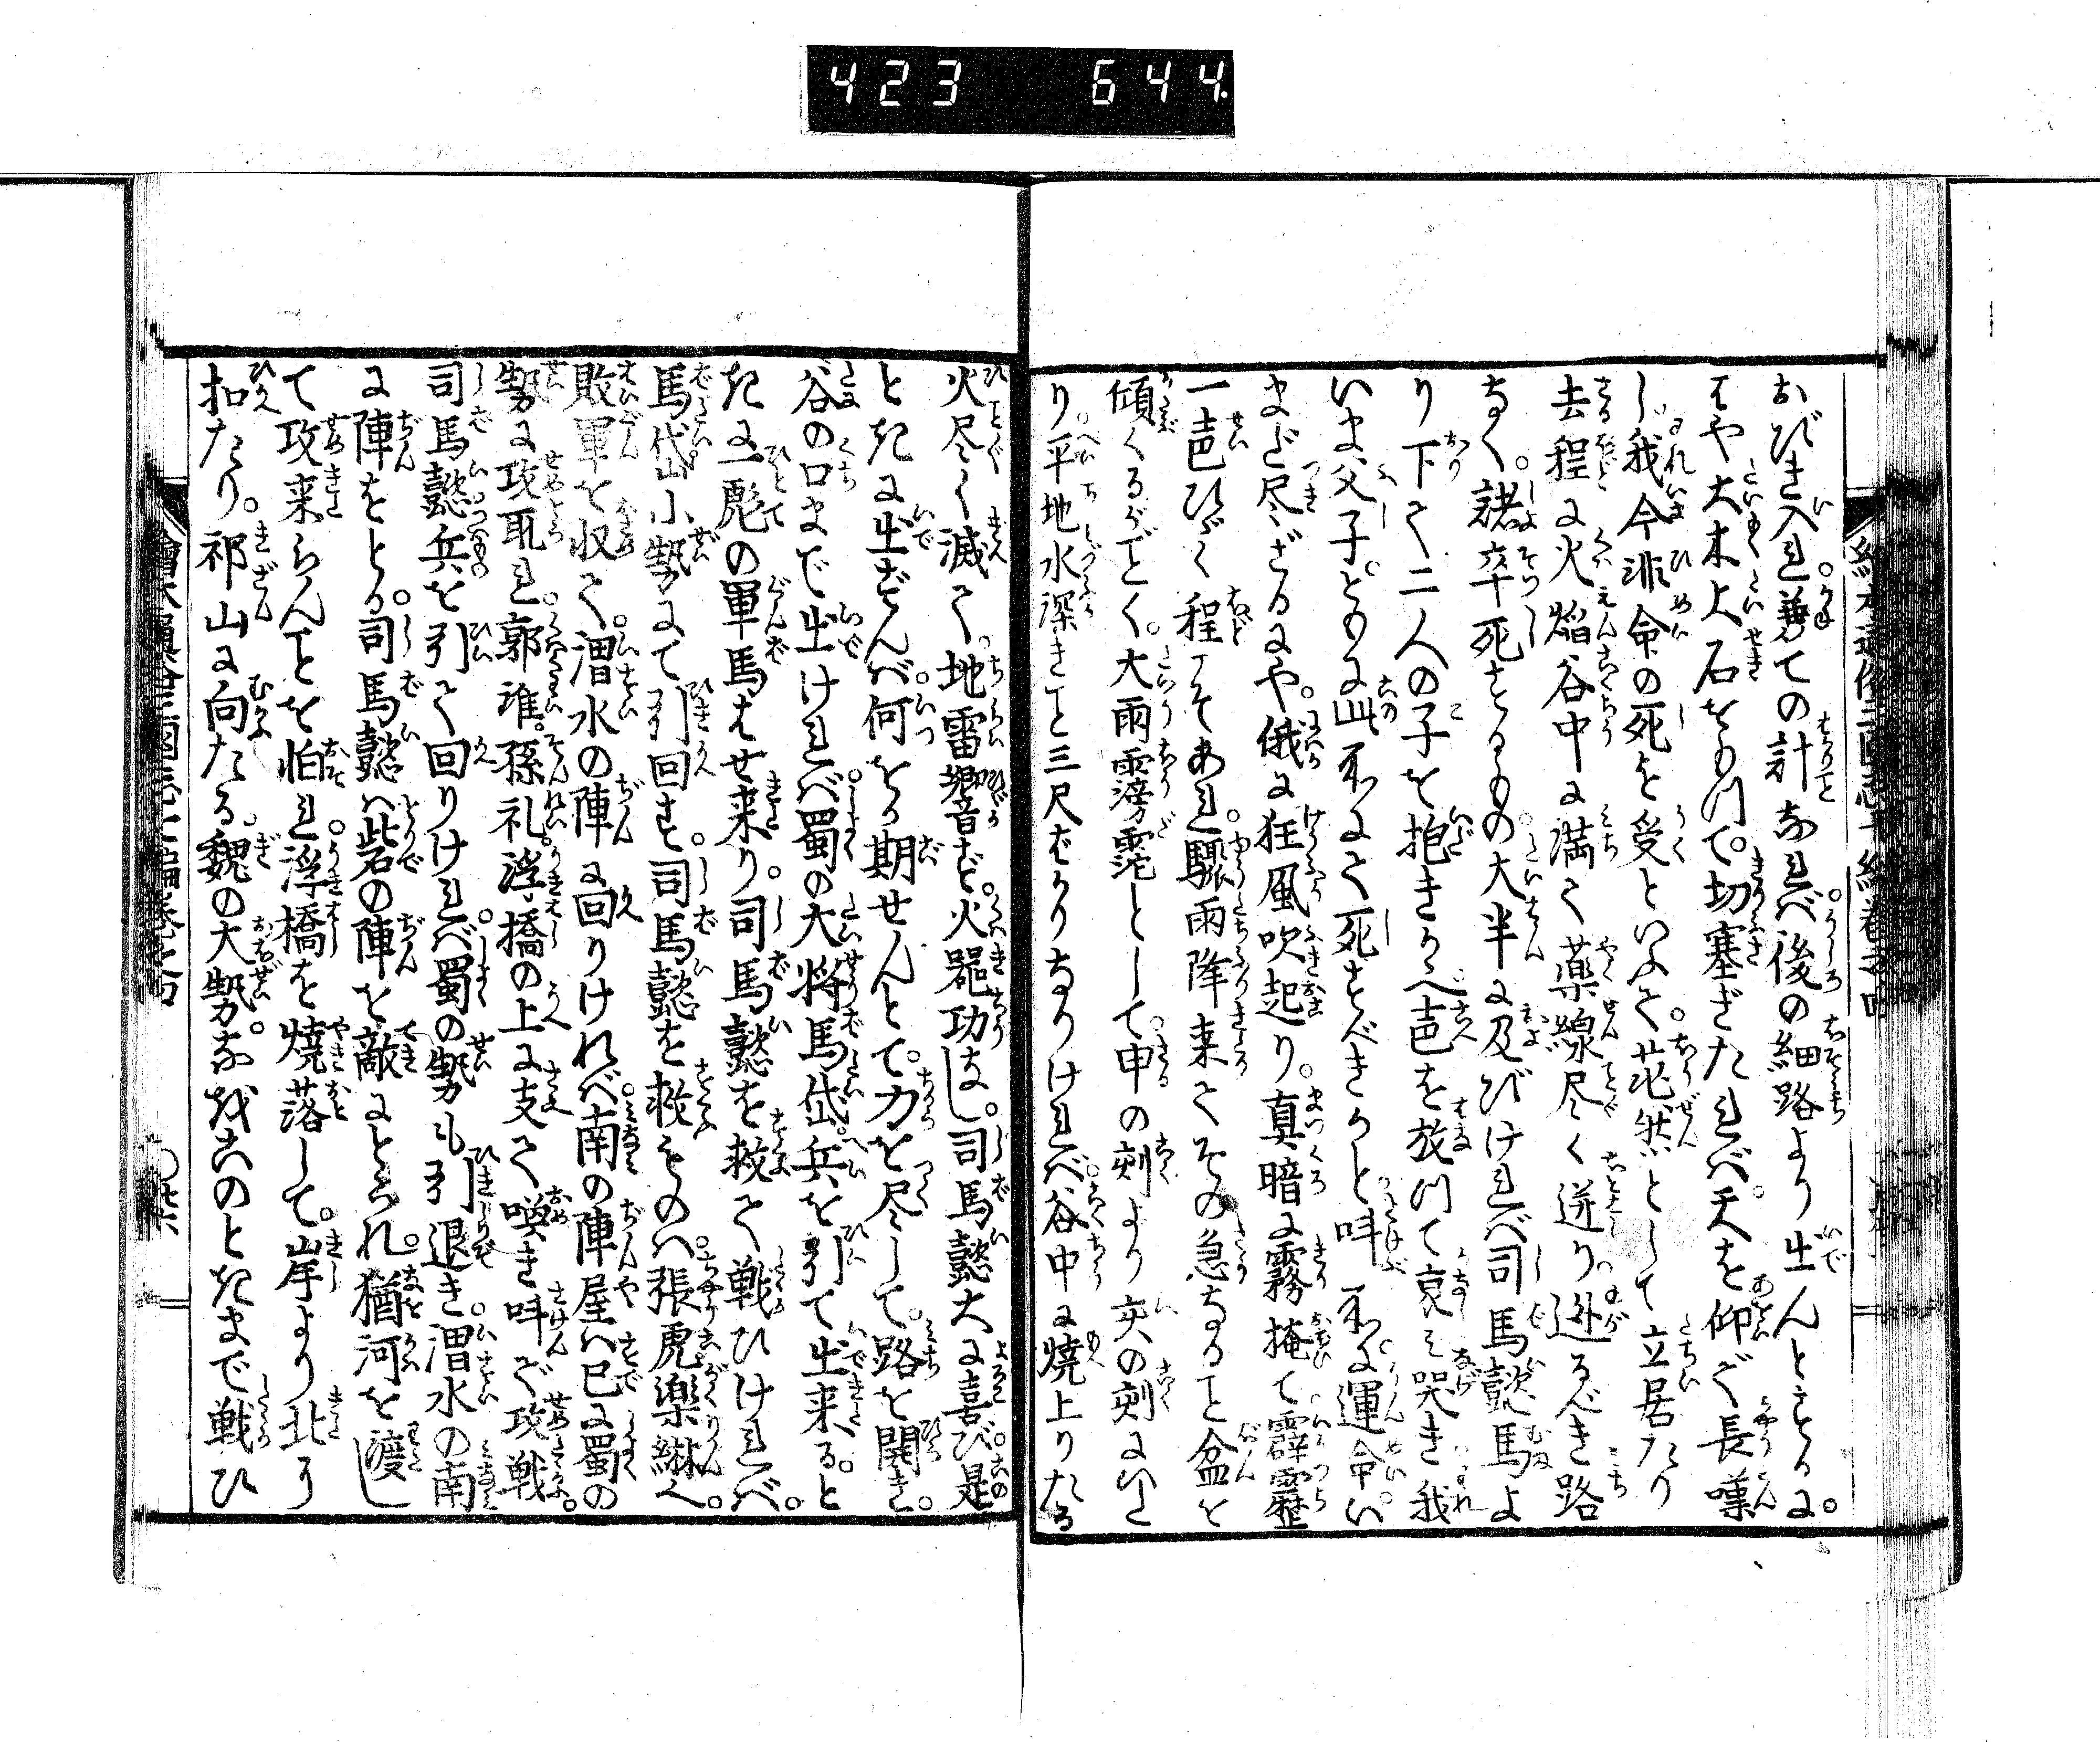 423 644.
おびき入れ。兼ての計なれば。後の細路より出んとするに。
はや大木大石をもつて。切塞ぎたれば。天を仰ぐ長嘆
し。我今非命の死を受といふて。茫然として立居たり
去程に火焔谷中に満て薬線尽く迸り。遁るべき路
なく。諸卒死するもの。大半に及びければ司馬懿馬よ
り下て二人の子を抱きかへ声を放つて哀み哭き我
いま父子。ともに此所にて死すべきかと叫所に。運命い
まだ尽ざるにや。俄に狂風吹起り。真暗に霧掩て霹靂
一声ひゞく程こそあれ。驟雨降来てその急なること盆を
傾くるがごとく。大雨滂沱として。申の刻より亥の刻にいた
り。平地水深きこと三尺ばかりなりければ。谷中に焼上りたる
火尽く滅て。地雷響ず。火器功なし。司馬懿大に喜び。是
ときに出ずんば。何をか期せんとて。力を尽して。路を開き。
谷の口まで出ければ。蜀の大将馬岱。兵を引て出来ると
きに一彪の軍馬はせ来り。司馬懿を救て戦ひければ。
馬岱小勢にて引回す。司馬懿を救ものハ。張虎楽綝へ。
敗軍を収て。渭水の陣に回りけれバ。南の陣屋ハ已に蜀の
勢に攻取れ。郭淮。孫礼。浮橋の上に支て喚き叫で攻戦。
司馬懿兵を引て回りければ。蜀の勢も引退き。渭水の南
に陣をとる。司馬懿ハ砦の陣を敵にとられ。猶河を渡し
て攻来らんことを怕れ。浮橋を焼落して。岸より北に
扣たり。祁山に向たる。魏の大勢。孔明のときまで戦ひ